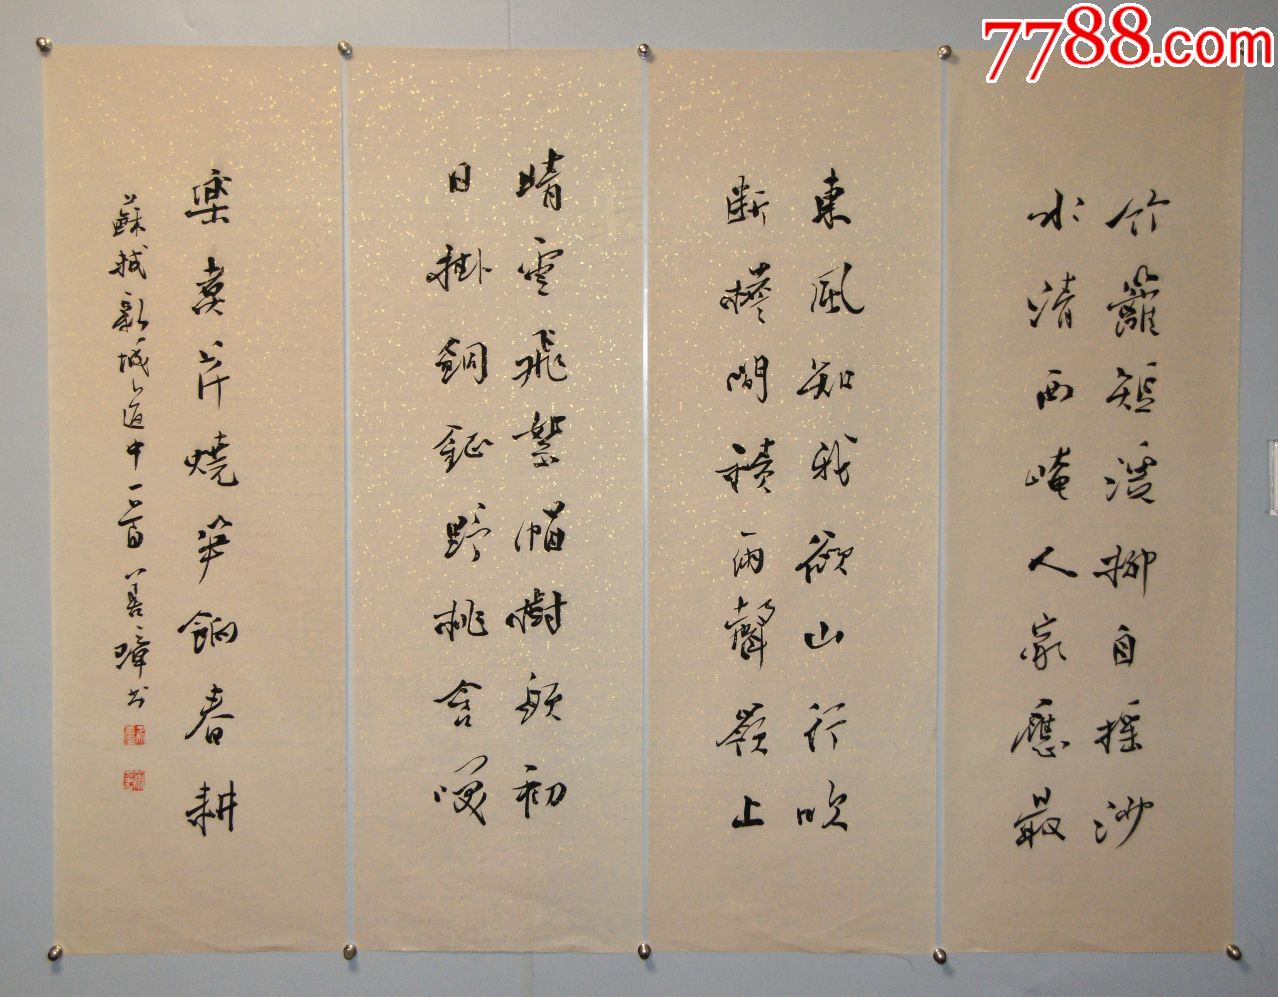 竹籬短溪柳自搖沙
水清西崦人家應最
東風知我欲山行吹
斷檐間積雨聲嶺上
晴雲飛絮帽樹頭初
日掛銅鉦野桃含咲
樂煮芹燒笋餉春耕
蘇軾新城道中一首 善璋书
7788.com